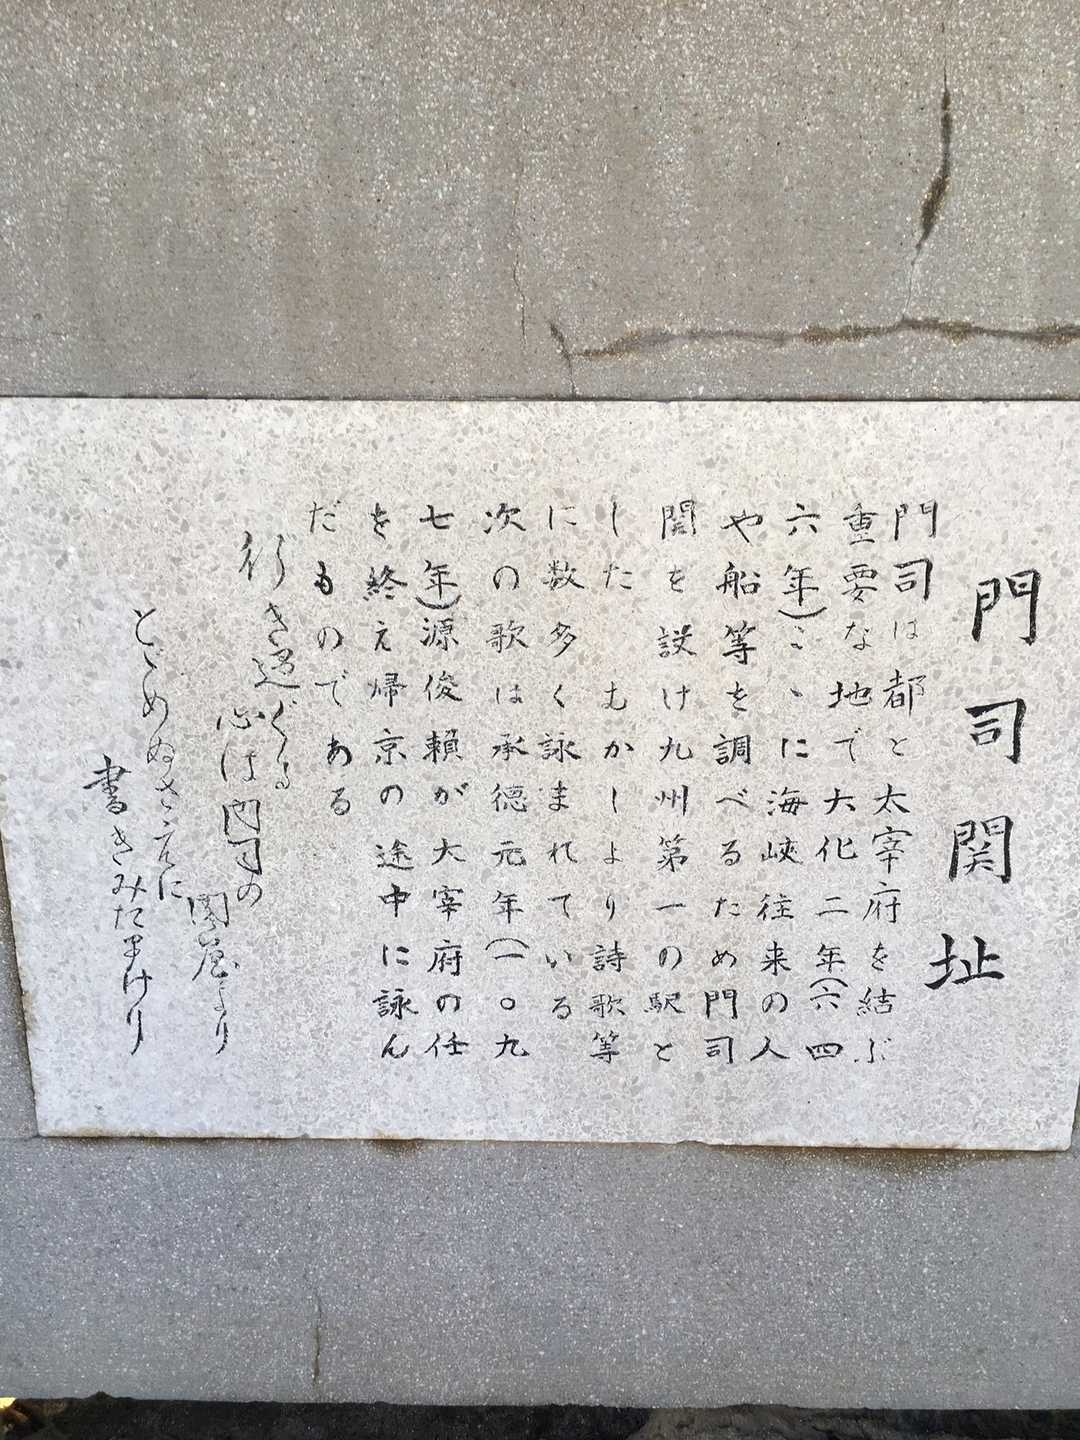 門司関址
門司は都と太宰府を結ぶ
重要な地で大化二年(六四
六年)こゝに海峡往来の人
や船等を調べるため門司
関を設け九州第一の駅と
した むかしより詩歌等
に数多く詠まれている
次の歌は承徳元年(一〇九
七年)源俊頼が大宰府の任
を終え帰京の途中に詠ん
だものである
行き過ぐる
心は門司の
関屋より
とゞめぬさえに
書きみだりけり